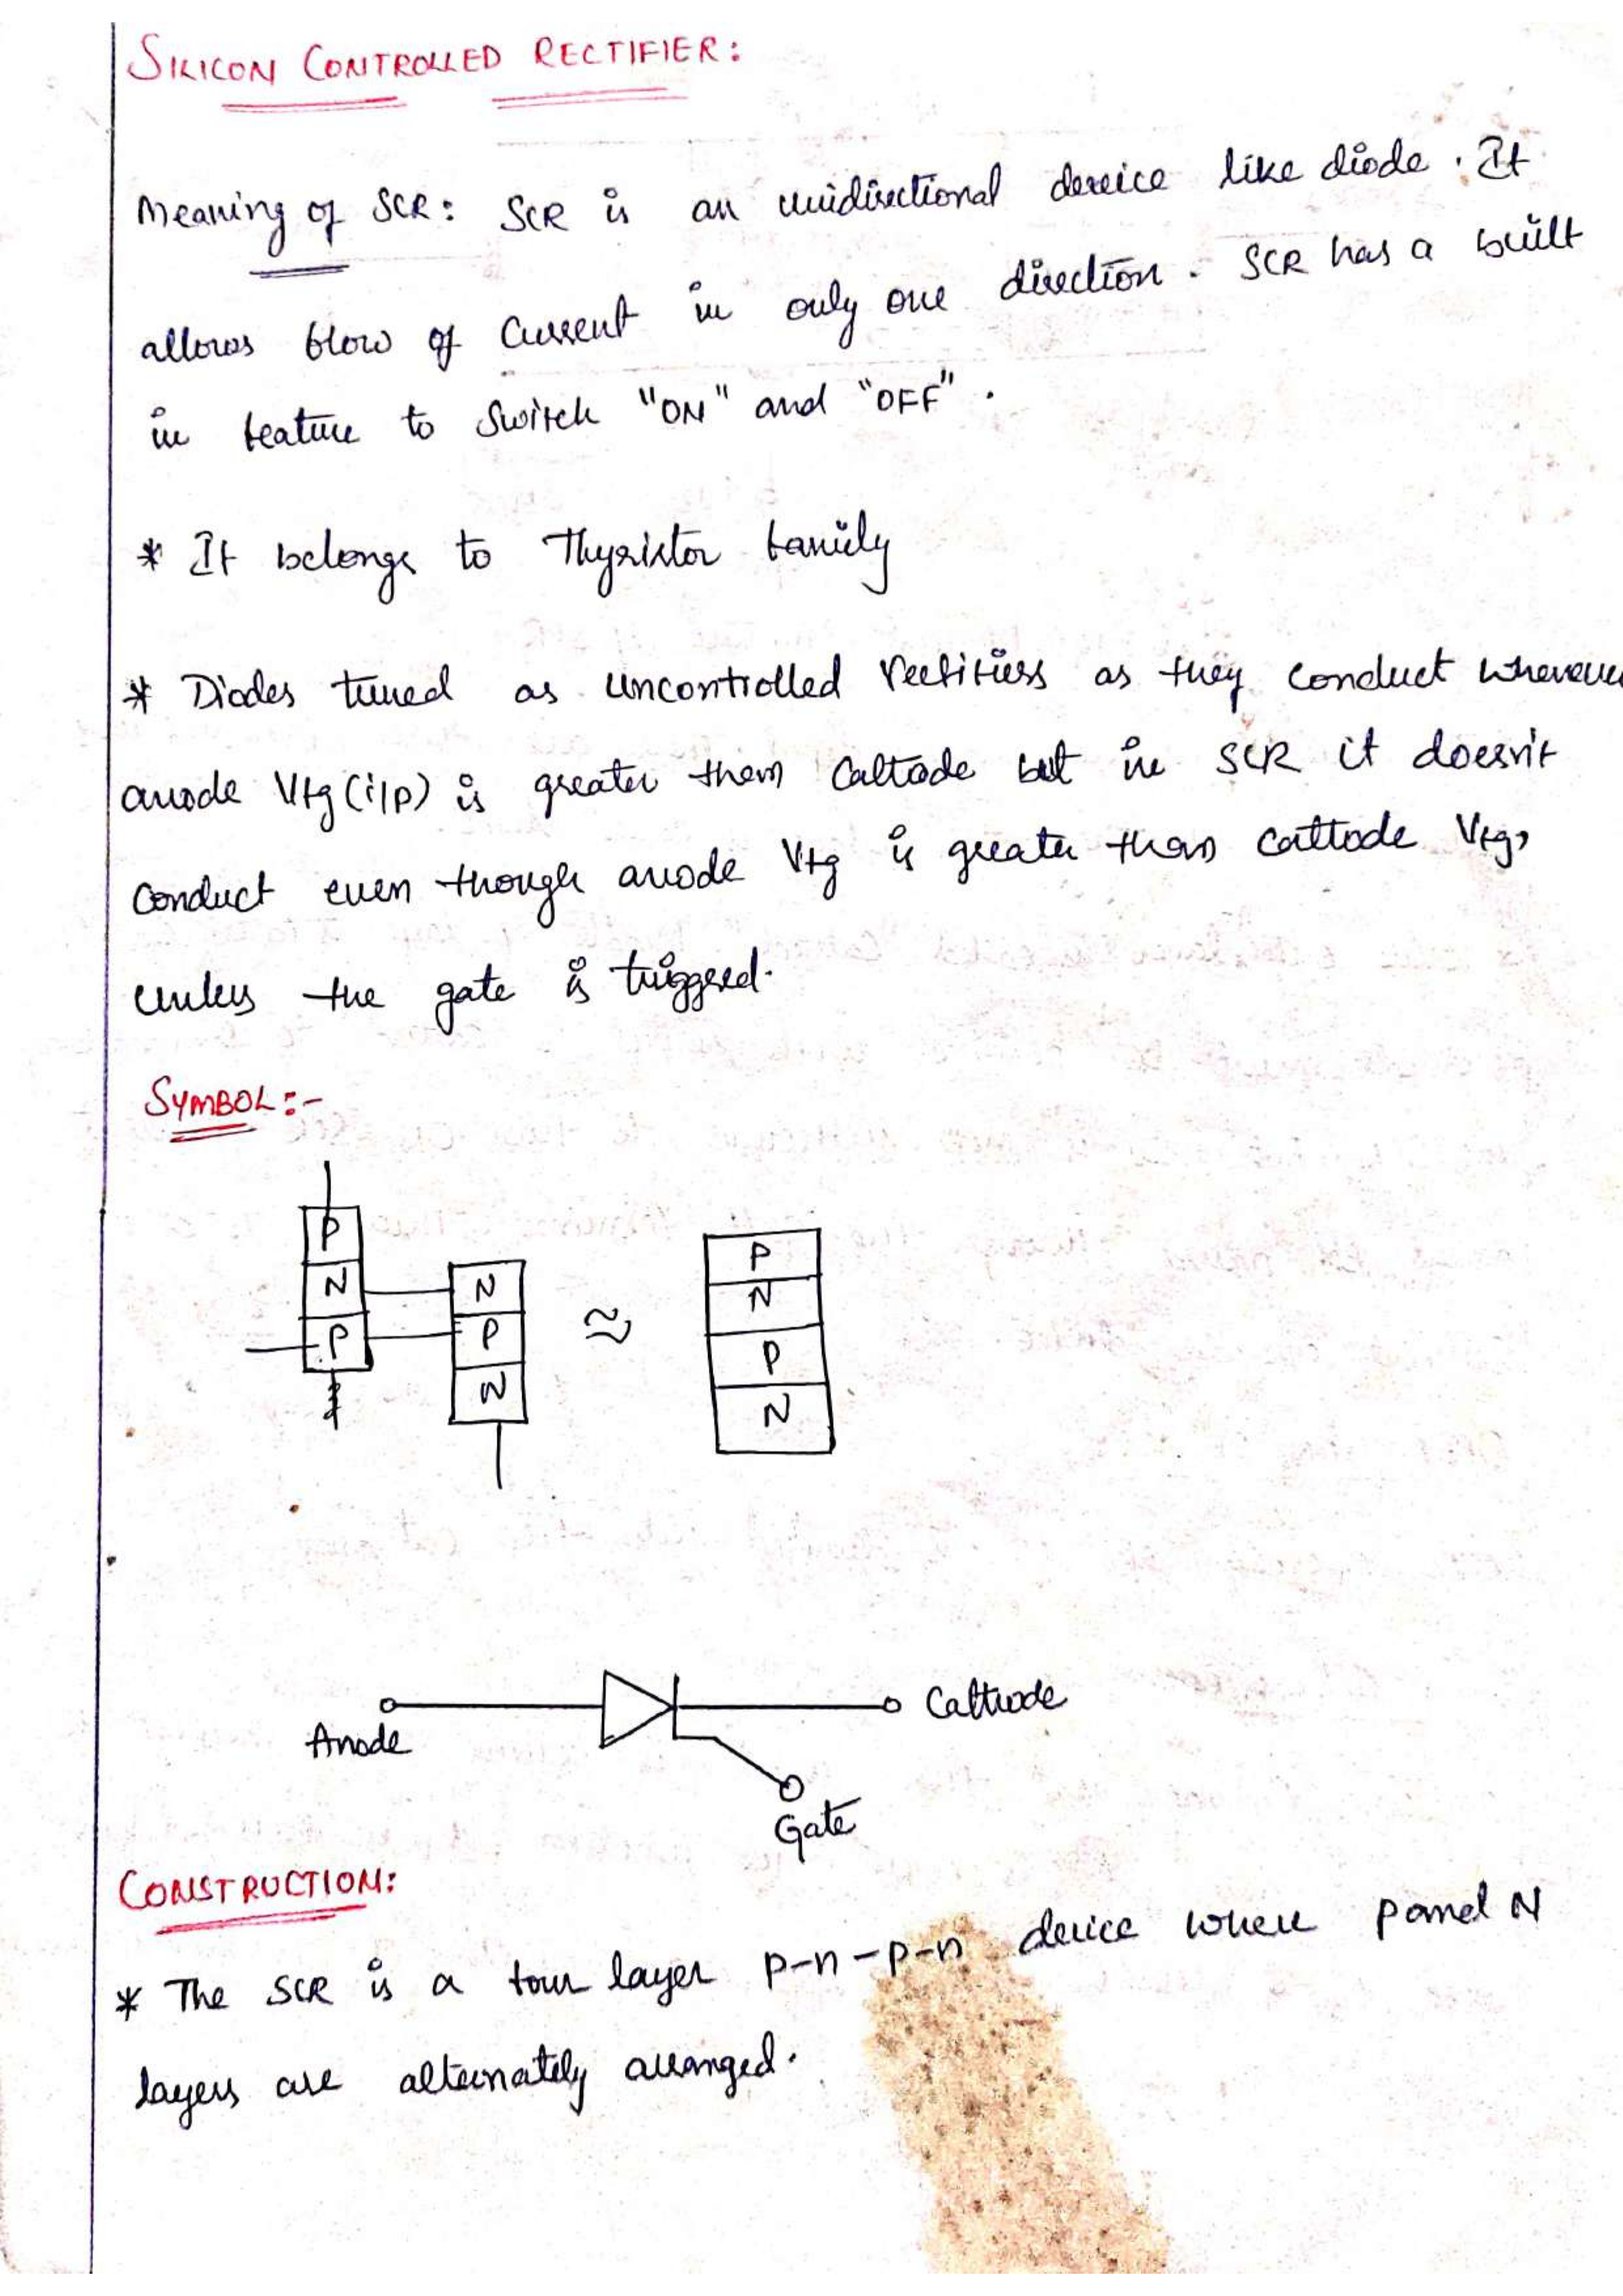 SILICON CONTROLLED RECTIFIER:
Meaning of SCR: SCR is an unidirectional device like diode. It
allows flow of Current in only one direction. SCR has a built
in feature to Switch "ON" and "OFF".
* It belongs to Thyristor family
* Diodes turned as uncontrolled rectifiers as they conduct whenever
anode Vtg (i/p) is greater then Cathode but in SCR it doesn't
conduct even though anode Vtg is greater than cathode Vtg,
unless the gate is triggered.
SYMBOL:-
P
N N
P P
N
≈
P
N
P
N
Anode
Cathode
Gate
CONSTRUCTION:
* The SCR is a four layer p-n-p-n device where p and N
layers are alternately arranged.